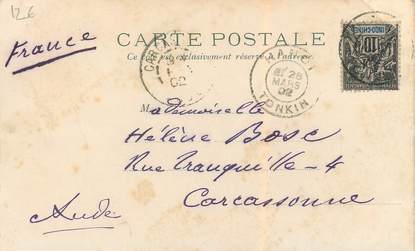 12€
France
CARTE POSTALE
Ce côté est exclusivement réservé à l'adresse
INDO-CHINE
10
28
MARS
02
TONKIN
02
Mademoiselle
Hélène Bosc
Rue Tranquille - 4
Carcassonne
Aude